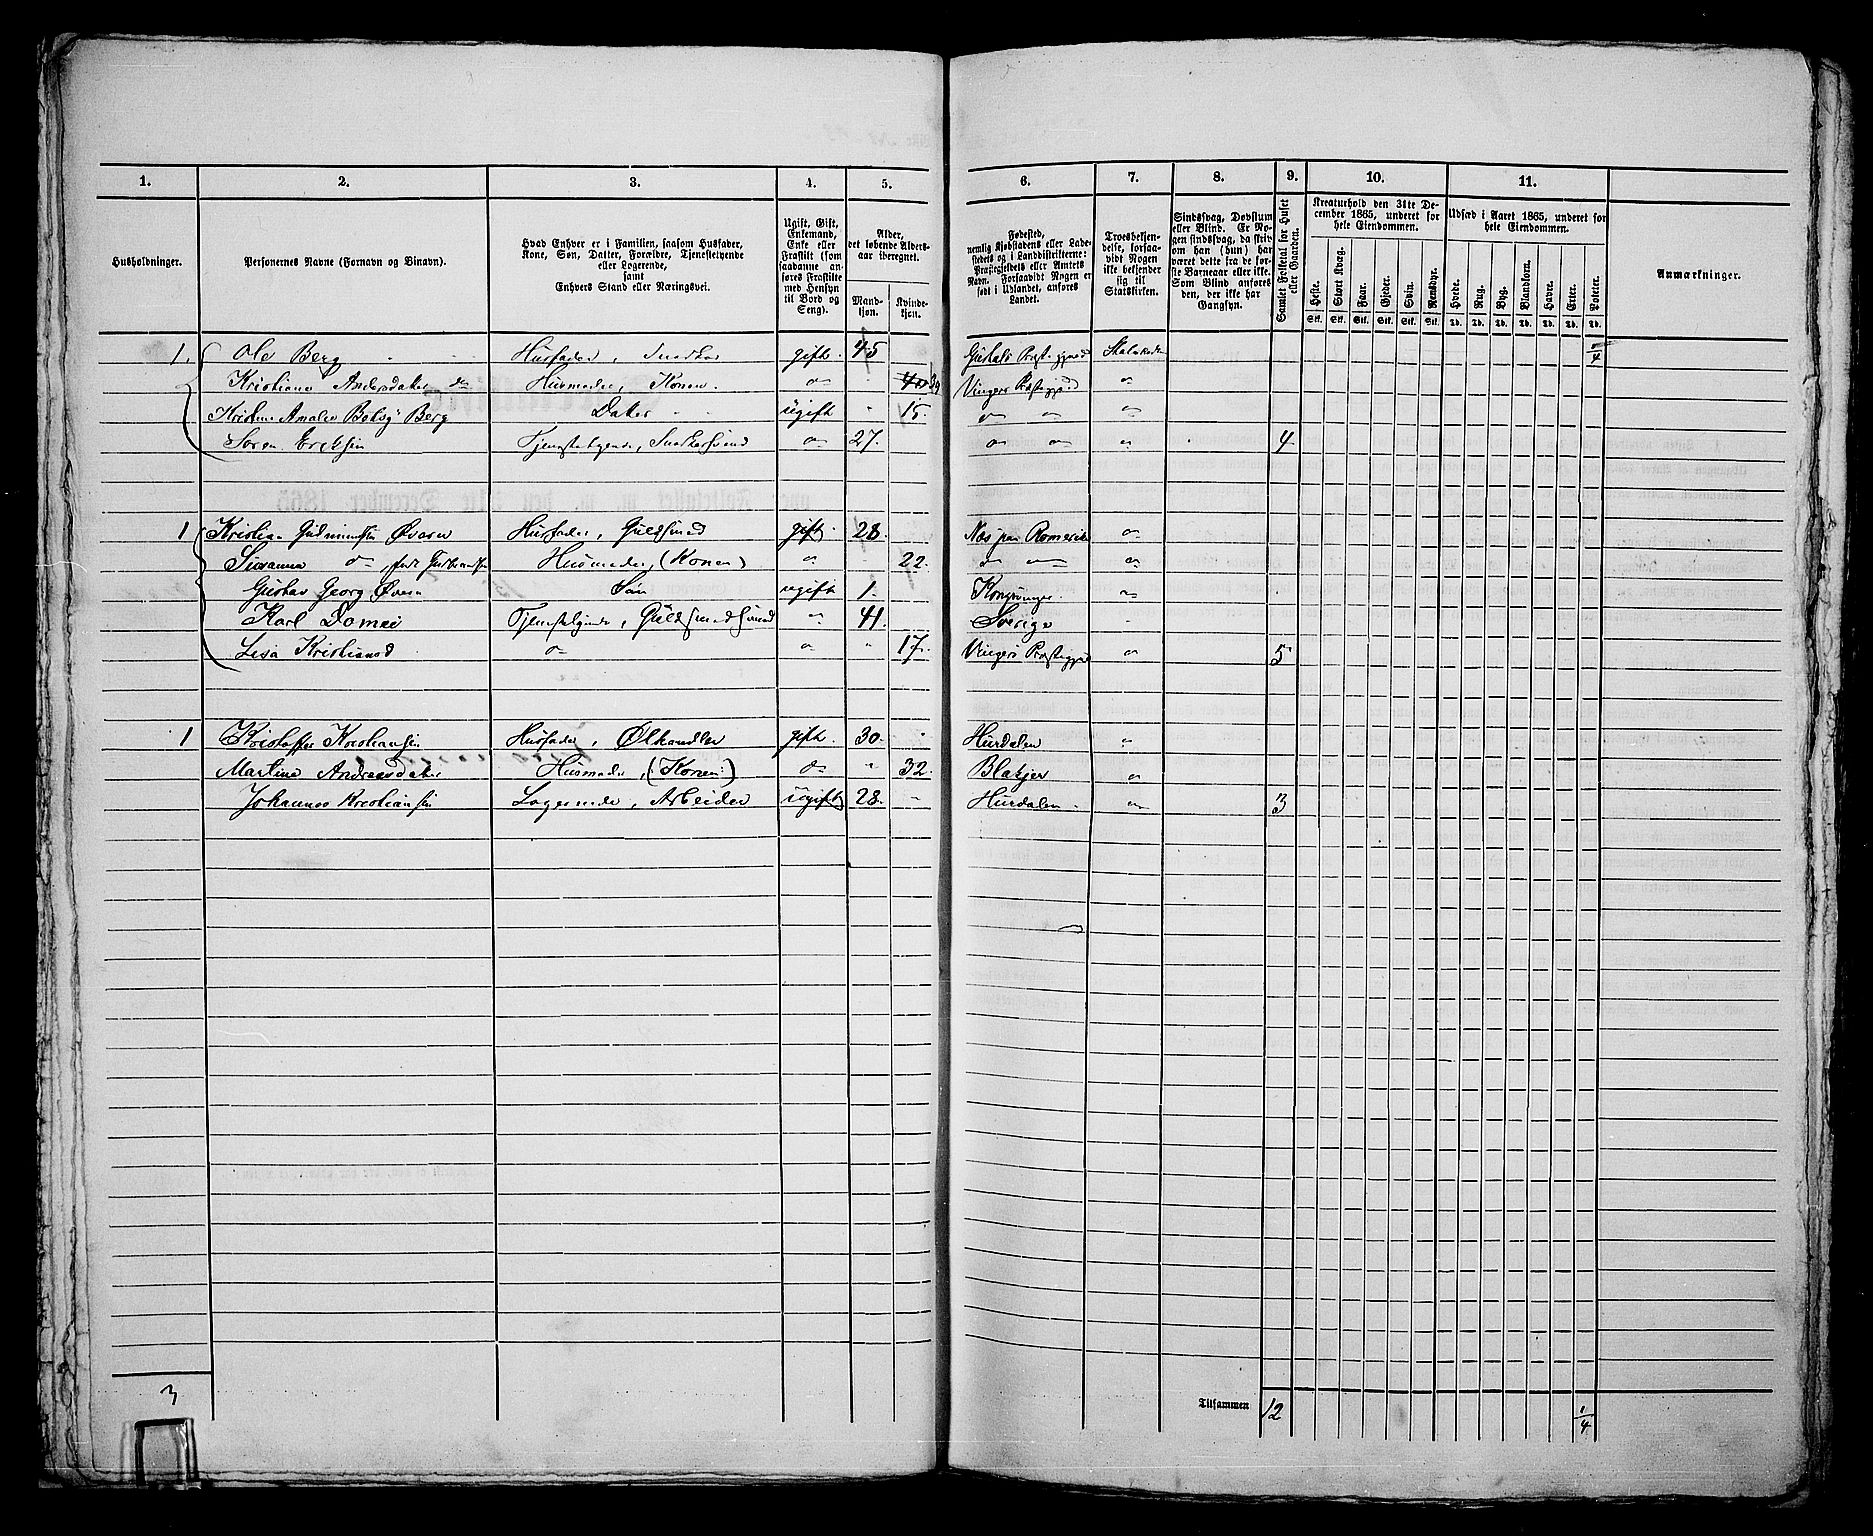 1. 2. 3. 4. 5. 6. 7. 8. 9. 10. 11.
Husholdninger.
Personernes Navne (Fornavn og Binavn).
Hvad Enhver er i Familien, saasom Husfader,
Kone, Søn, Datter, Forældre, Tjenestetyende
eller Logerende,
samt
Enhvers Stand eller Næringsvei.
Ugift, Gift,
Enkemand,
Enke eller
Fraskilt (som
saadanne an-
føres Fraskilte
med Hensyn
til Bord og
Seng).
Alder,
det løbende Alders-
aar iberegnet.
Mand-
kjøn.
Kvinde-
kjøn.
Fødested,
nemlig Kjøbstadens eller Lade-
stedets og i Landdistrikterne:
Præstegjeldets eller Amtets
Navn. Forsaavidt Nogen er
født i Udlandet, anføres
Landet.
Troesbekjen-
delse, forsaa-
vidt Nogen
ikke bekjender
sig til
Statskirken.
Sindssvag, Døvstum
eller Blind. Er No-
gen sindssvag, da skriv
om han (hun) har
været dette fra de før-
ste Barneaar eller ikke.
Som Blind anføres
den, der ikke har
Gangsyn.
Samlet Folketal for Huset
eller Gaarden.
Kreaturhold den 31te De-
cember 1865, underet for
hele Eiendommen.
Heste. Stort Kvæg. Faar. Gjeder. Svin. Rensdyr.
Stk. Stk. Stk. Stk. Stk. Stk.
Udsæd i Aaret 1865, underet for
hele Eiendommen.
Hvede. Rug. Byg. Blandkorn. Havre. Erter. Poteter.
Td. Td. Td. Td. Td. Td. Td.
Anmærkninger.
1. Ole Berg Husfader, Snedker gift. 45 1/4
Kristiane Andersdatter Husmoder, Konen " 40 Vingers Præstegjeld "
Kristine Amalie Betsy Berg Datter ugift " 15. " " "
Søren Eriksen Tjenestetyende, Snedkersvend " 27. " " " 4
1 Kristian Gulmunsen Øveren Husfader, Guldsmed gift. 28. Næs paa Romerike "
Susanna " Husmoder, (Konen) " 22. " " "
Gustav Georg Øveren Søn ugift 1. Kongsvinger "
Karl Domei Tjenestetyende, Guldsmedsvend " 41. Sverige
Lisa Kristiansd " " " 17. Vingers Præstegjeld " 5
1 Kristoffer Kristiansen Husfader, Ølhandler gift. 30. Hurdalen "
Martine Andreasdatter Husmoder, (Konen) " " 32. Blakjer "
Johannes Kristiansen Logerende, Arbeider ugift 28. Hurdalen " 3
3 Tilsammen 12 1/4